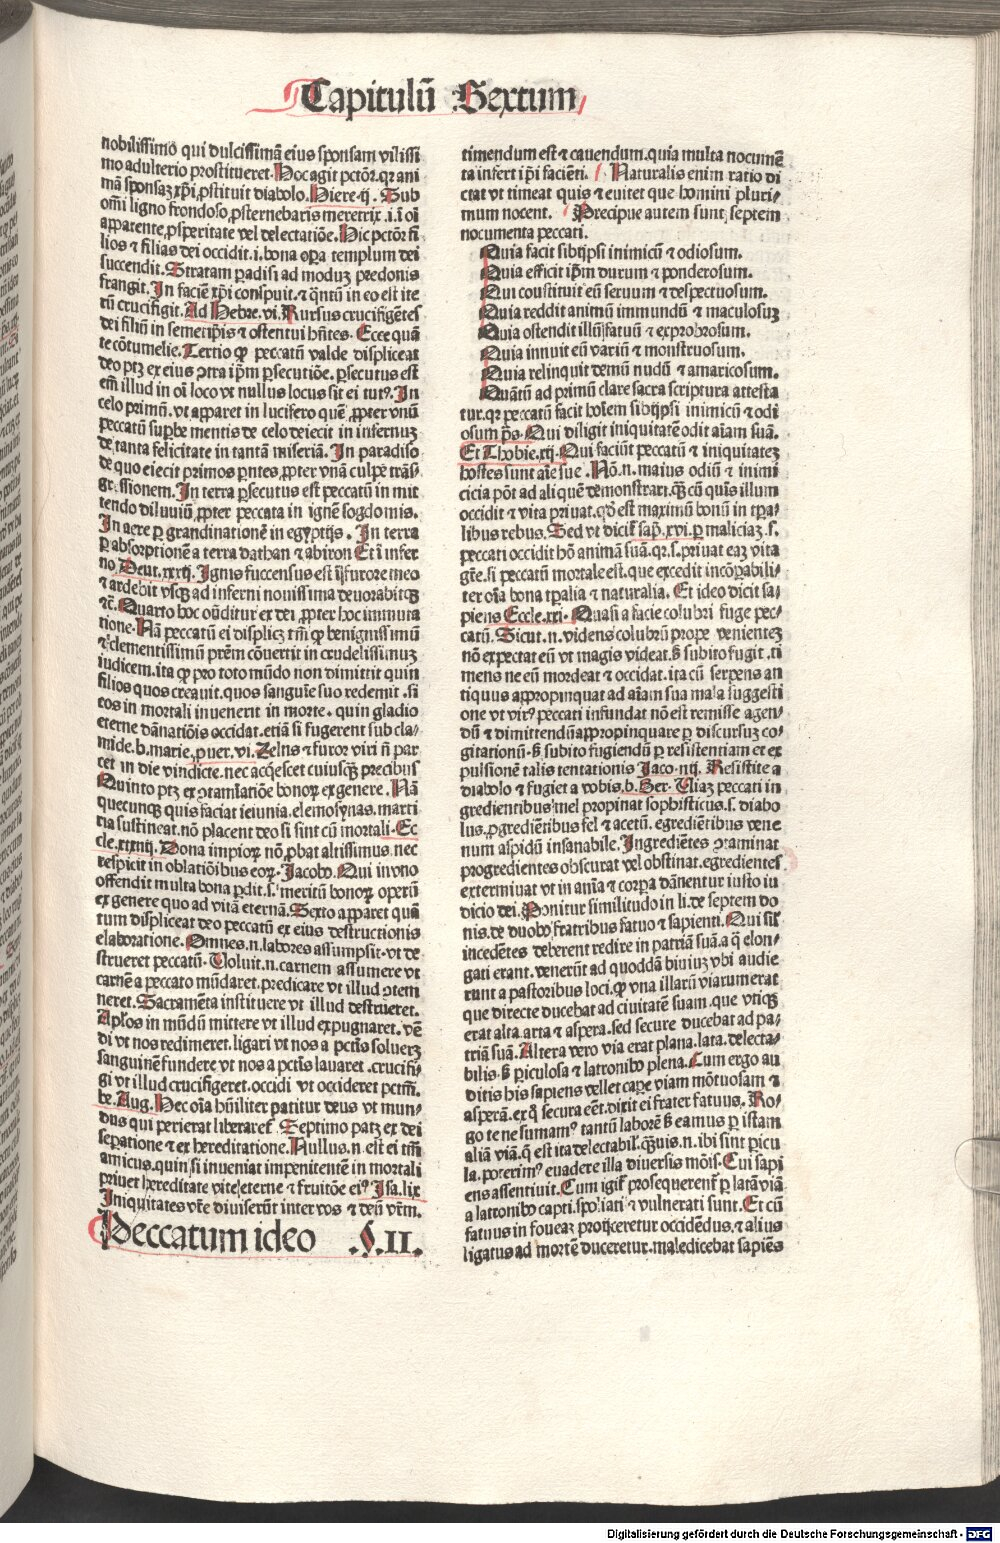 Capitulū Sextum
nobilissimo qui dulcissimā eius sponsam vilissi
mo adulterio prostitueret. Hoc agit pctōr. qr ani
mā sponsaꝫ xp̄i ꝓstituit diabolo. Hiere. ij. Sub
om̄i ligno frondoso ꝓsternebaris meretrix. i. ī oī
apparente ꝓsperitate vel delectatiōe. Hic pctōr fi
lios ⁊ filias dei occidit. i. bona oꝑa templum dei
succendit. Stratam paradisi ad moduꝫ predonis
frangit. In faciē xp̄i conspuit. ⁊ qͣntū in eo est ite
rū crucifigit. Ad Hebre. vi. Rursus crucifigētes
dei filiū in semetip̄is ⁊ ostentui hn̄tes. Ecce quā
te cōtumelie. Tertio ꝙ peccatū valde displiceat
deo ptꝫ ex eius ꝯtra ip̄m ꝑsecutiōe. ꝑsecutus est
em̄ illud in oī loco vt nullus locus sit ei tutꝰ. In
celo primū. vt apparet in lucifero quē ꝓpter vnū
peccatū superbe mentis de celo deiecit in infernuꝫ
de tanta felicitate in tantā miseriā. In paradiso
de quo eiecit primos pn̄tes ꝓpter vnā culpe trās
gressionem. In terra ꝑsecutus est peccatū in mit
tendo diluuiū ꝓpter peccata in ignē sogdomis.
In aere ꝑ grandinationē in egyptijs. In terra
ꝑ absorptionē a terra dathan ⁊ abiron Et ī infer
no. Deut. xxxij. Ignis succensus est in furore meo
⁊ ardebit vsqꝫ ad inferni nouissima deuorabitqꝫ
⁊c̄. Quarto hoc on̄ditur ex dei ꝓpter hoc immuta
tione. Nā peccatū ei displicꝫ tm̄ ꝙ benignissimū
⁊ clementissimū prēm cōuertit in crudelissimuꝫ
iudicem. ita ꝙ pro toto mūdo non dimittit quin
filios quos creauit. quos sanguīe suo redemit. si
eos in mortali inuenerit in morte. quin gladio
eterne dānatiōis occidat. etiā si fugerent sub cla
mide. b. marie. ꝓuer. vi. Zelus ⁊ furor viri nō par
cet in die vindicte. nec acqͥescet cuiusqꝫ precibus
Quinto ptꝫ ex ꝯtamīatiōe bonoꝝ ex genere. Nā
quecunqꝫ quis faciat ieiunia. elemosynas. marti
ria sustineat. nō placent deo si sint cū mortali. Ec
cle. xxxiij. Dona impioꝝ nō ꝓbat altissimus. nec
respicit in oblatiōibus eoꝝ. Jacobo. Qui in vno
offendit multa bona ꝑdit. s. meritū bonoꝝ operū
ex genere quo ad vitā eternā. Sexto apparet quā
tum displiceat deo peccatū ex eius destructionis
elaboratione. Omnes. n. labores assumpsit. vt de
strueret peccatū. Voluit. n. carnem assumere vt
carnē a peccato mūdaret. predicare vt illud ꝯtem
neret. Sacramēta instituere vt illud destrueret.
Apl̄os in mūdū mittere vt illud expugnaret. vē
di vt nos redimeret. ligari vt nos a pctīs solueret
sanguinē fundere vt nos a pctīs lauaret. crucifi
gi vt illud crucifigeret. occidi vt occideret pctm̄.
be. Aug. Hec oīa hūiliter patitur deus vt mun⸗
dus qui perierat liberaretˀ. Septimo patꝫ ex dei
seꝑatione ⁊ ex hereditatione. Nullus. n. est ei tm̄
amicus. quin si inueniat impenitentē in mortali
priuet hereditate vite eterne ⁊ fruitōe eiꝰ. Isa. lix
Iniquitates vr̄e diuiserūt inter vos ⁊ deū vr̄m.
Peccatum ideo .§.II.
timendum est ⁊ cauendum. quia multa nocumē
ta infert ip̄i faciēti. Naturalis enim ratio di
ctat vt timeat quis ⁊ euitet que homini pluri⸗
mum nocent. Precipue autem sunt septem
nocumenta peccati.
Quia facit sibijpsi inimicū ⁊ odiosum.
Quia efficit ip̄m durum ⁊ ponderosum.
Qui coustituit eū seruum ⁊ despectuosum.
Quia reddit animū immundū ⁊ maculosuꝫ
Quia ostendit illū fatuū ⁊ exprobrosum.
Quia innuit eū variū ⁊ monstruosum.
Quia relinquit demū nudū ⁊ amaricosum.
Quātū ad primū clare sacra scriptura attesta
tur. qr peccatū facit hoīem sibijpsi inimicū ⁊ odi
osum p̄s. Qui diligit iniquitatē odit aīam suā.
Et Thobie. xij. Qui faciūt peccatū ⁊ iniquitateꝫ
hostes sunt aīe sue. Nō. n. maius odiū ⁊ inimi
cicia pōt ad aliquē demonstrari. qͣꝫ cū quis illum
occidit ⁊ vita priuat. qd̓ est maximū bonū in tꝑa⸗
libus rebus. Sed vt dicit̓ sap̄. xvi. ꝑ maliciaꝫ. s.
peccati occidit hō animā suā. qr. s. priuat eaꝫ vita
gr̄e. si peccatū mortale est. que excedit incōꝑabili⸗
ter oīa bona tꝑalia ⁊ naturalia. Et ideo dicit sa⸗
piens Eccle. xxi. Quasi a facie colubri fuge pec⸗
catū. Sicut. n. videns colubrū prope venienteꝫ
nō expectat eū vt magis videat. sꝫ subito fugit. ti
mens ne eū mordeat ⁊ occidat. ita cū serpens an
tiquus appropinquat ad aīam sua mala suggesti
one vt virꝰ peccati infundat nō est remisse agen⸗
dū ⁊ dimittendū appropinquare ꝑ discursuꝫ co⸗
gitationū. sꝫ subito fugiendū ꝑ resistentiam et ex
pulsionē talis tentationis Jaco. iiij. Resistite a
diabolo ⁊ fugiet a vobis. b. Ber. Viaꝫ peccati in
gredientibus mel propinat sophisticus. s. diabo
lus. ꝓgrediētibus fel ⁊ acetū. egrediētibus vene
num aspidū insanabile. Ingrediētes ꝯtaminat
progredientes obscurat vel obstinat. egredientes
exterminat vt in anīa ⁊ corpa dānentur iusto iu
dicio dei. Ponitur similitudo in li. de septem do
nis. de duobꝰ fratribus fatuo ⁊ sapienti. Qui sil̓
incedētes deberent redire in patriā suā. a qͣ elon⸗
gati erant. venerūt ad quoddā biuiuꝫ vbi audie
runt a pastoribus loci. ꝙ vna illarū viarum erat
que directe ducebat ad ciuitatē suam. que vtiqꝫ
erat alta. arta ⁊ aspera. sed secure ducebat ad pa⸗
triā suā. Altera vero via erat plana. lata. delecta⸗
bilis. sꝫ ꝑiculosa ⁊ latronibꝰ plena. Cum ergo au
ditis his sapiens vellet caꝑe viam mōtuosam ⁊
asperā. ex qͦ secura eēt. dixit ei frater fatuus. Ro⸗
go te ne sumamꝰ tantū laborē sꝫ eamus ꝑ istam
aliā viā. qͣ est ita delectabil̓. qͣꝫuis. n. ibi sint ꝑicu
la. poterimꝰ euadere illa diuersis mōis. Cui sapi
ens assentiuit. Cum igit̓ prosequerent̓ ꝑ latā viā
a latronibꝰ capti. spoliati ⁊ vulnerati sunt. Et cū
fatuus in foueaꝫ proijceretur occidēdus. ⁊ alius
ligatus ad mortē duceretur. maledicebat sapiēs
Digitalisierung gefördert durch die Deutsche Forschungsgemeinschaft - DFG